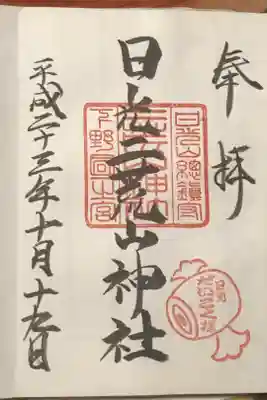 奉拝
日光二荒山神社
平成二十三年十月十九日
日光山總鎮守
下野国一之宮